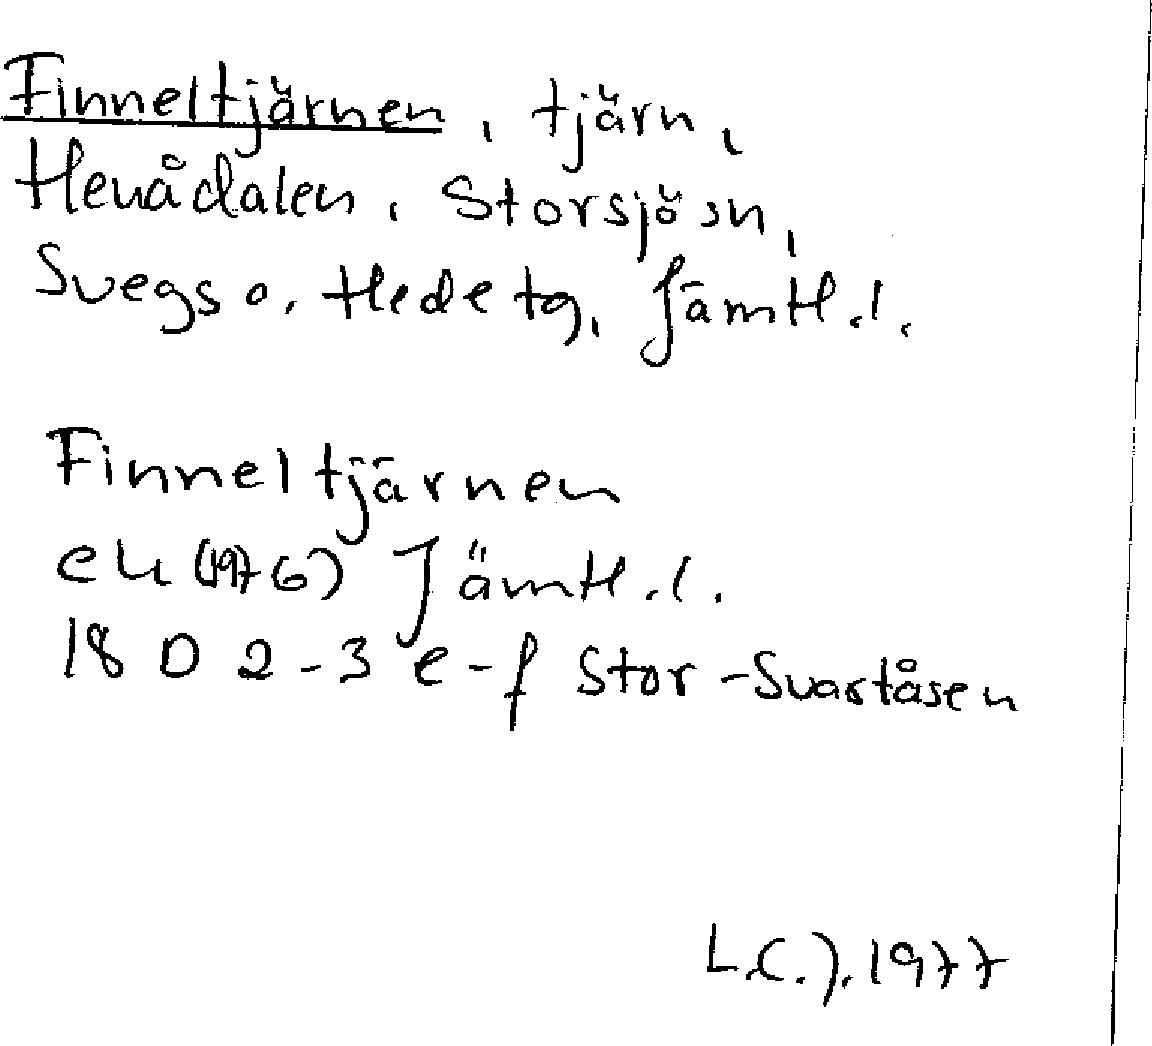 Finneltjärnen, tjärn,
Henådalen, Storsjö sn,
Svegs o. Hede tg, Jämtl. l.
Finneltjärnen
ek (1976) Jämtl. l.
18 D 2-3 e-f Stor-Svartåsen
L.C.J. 1977